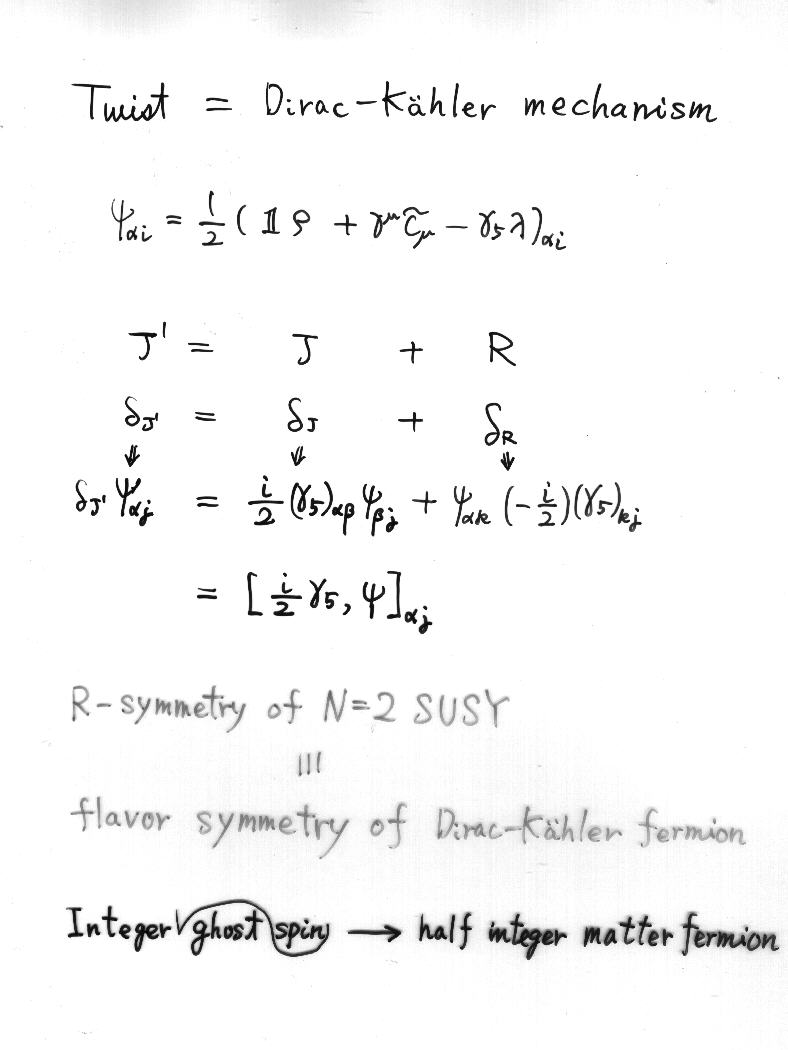 Twist = Dirac-Kähler mechanism
ψαi = 1/2 ( 𝟙 ρ + γ^μ C̃_μ − γ5 λ )αi
J' = J + R
δJ' = δJ + δR
⇓ ⇓ ⇓
δJ' ψαj = i/2 (γ5)αβ ψβj + ψαk (− i/2)(γ5)kj
= [ i/2 γ5, ψ ]αj
R-symmetry of N=2 SUSY
|||
flavor symmetry of Dirac-Kähler fermion
Integer ghost spin → half integer matter fermion